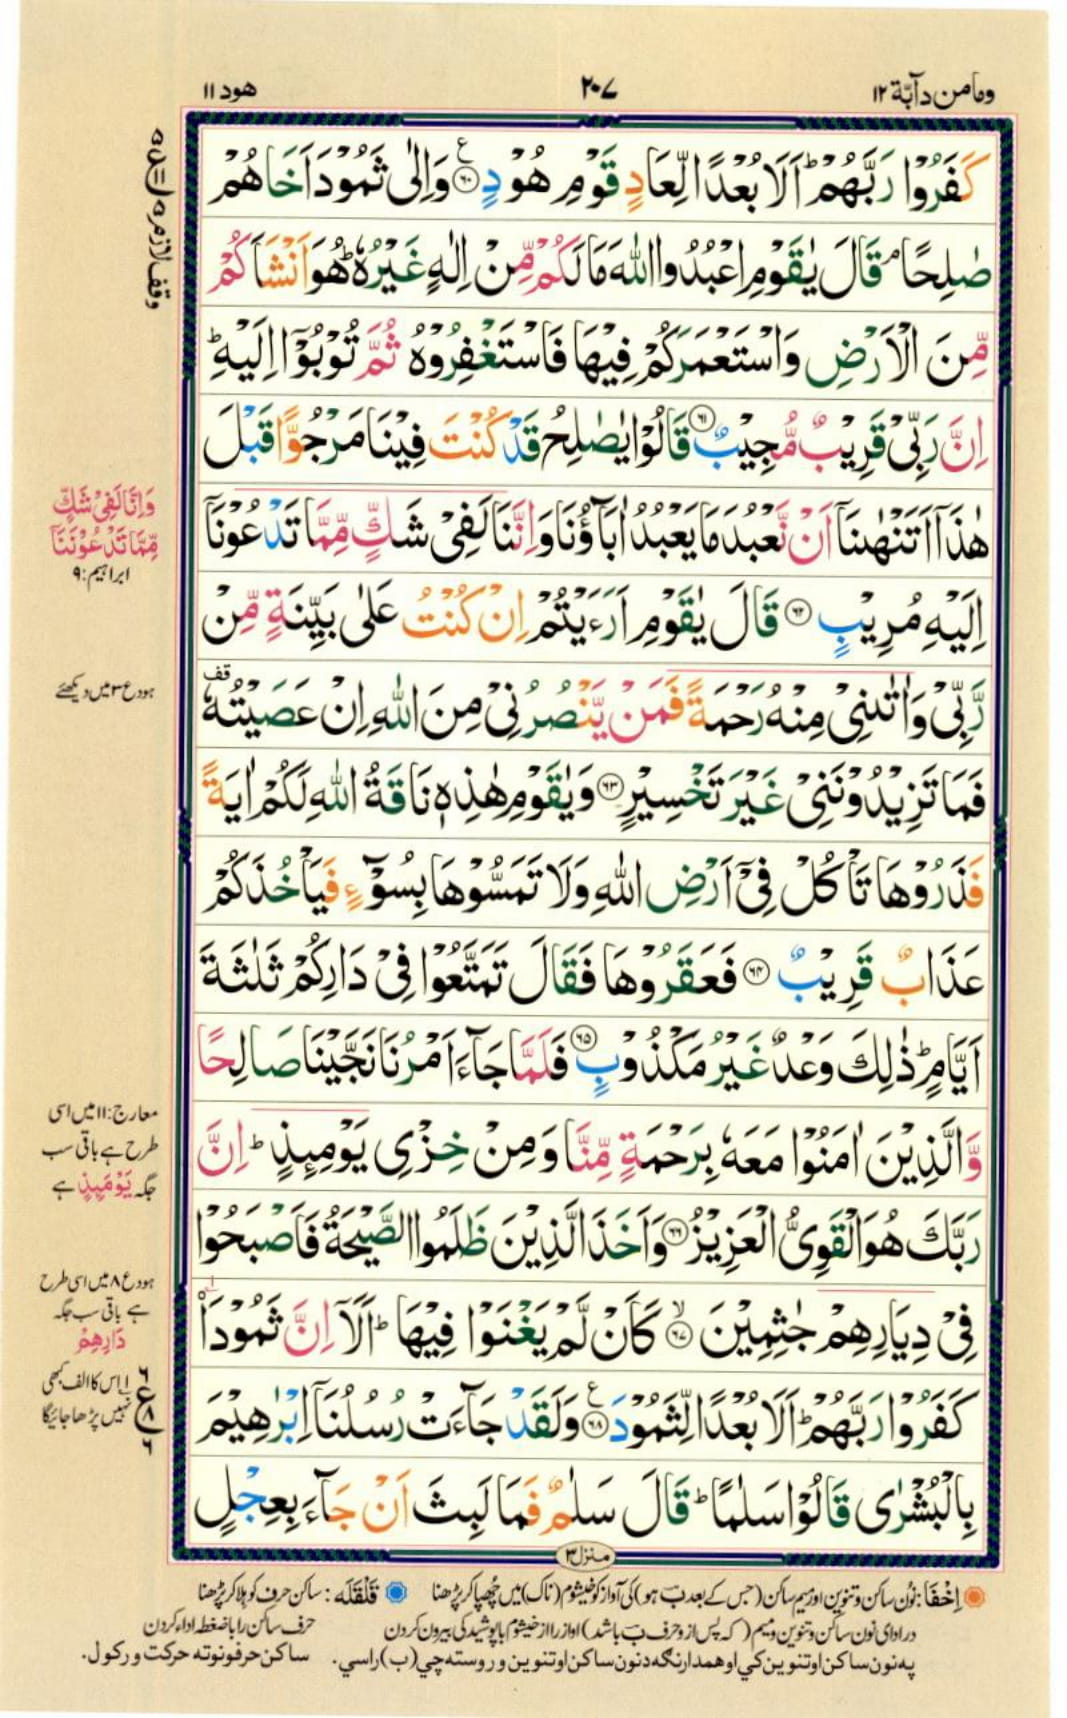 ومامن دآبّة ١٢
٢٠٧
هود ١١
كَفَرُوْا رَبَّهُمْ ؕ اَلَا بُعْدًا لِّعَادٍ قَوْمِ هُوْدٍ ۟ع ﴿۶۰﴾ وَاِلٰى ثَمُوْدَ اَخَاهُمْ
صٰلِحًا ۘ قَالَ يٰقَوْمِ اعْبُدُوا اللّٰهَ مَا لَكُمْ مِّنْ اِلٰهٍ غَيْرُهٗ ؕ هُوَ اَنْشَاَكُمْ
مِّنَ الْاَرْضِ وَاسْتَعْمَرَكُمْ فِيْهَا فَاسْتَغْفِرُوْهُ ثُمَّ تُوْبُوْٓا اِلَيْهِ ؕ
اِنَّ رَبِّيْ قَرِيْبٌ مُّجِيْبٌ ﴿۶۱﴾ قَالُوْا يٰصٰلِحُ قَدْ كُنْتَ فِيْنَا مَرْجُوًّا قَبْلَ
هٰذَآ اَتَنْهٰىنَآ اَنْ نَّعْبُدَ مَا يَعْبُدُ اٰبَآؤُنَا وَاِنَّنَا لَفِيْ شَكٍّ مِّمَّا تَدْعُوْنَآ
اِلَيْهِ مُرِيْبٍ ﴿۶۲﴾ قَالَ يٰقَوْمِ اَرَءَيْتُمْ اِنْ كُنْتُ عَلٰى بَيِّنَةٍ مِّنْ
رَّبِّيْ وَاٰتٰىنِيْ مِنْهُ رَحْمَةً فَمَنْ يَّنْصُرُنِيْ مِنَ اللّٰهِ اِنْ عَصَيْتُهٗ قف
فَمَا تَزِيْدُوْنَنِيْ غَيْرَ تَخْسِيْرٍ ﴿۶۳﴾ وَيٰقَوْمِ هٰذِهٖ نَاقَةُ اللّٰهِ لَكُمْ اٰيَةً
فَذَرُوْهَا تَاْكُلْ فِيْٓ اَرْضِ اللّٰهِ وَلَا تَمَسُّوْهَا بِسُوْٓءٍ فَيَاْخُذَكُمْ
عَذَابٌ قَرِيْبٌ ﴿۶۴﴾ فَعَقَرُوْهَا فَقَالَ تَمَتَّعُوْا فِيْ دَارِكُمْ ثَلٰثَةَ
اَيَّامٍ ؕ ذٰلِكَ وَعْدٌ غَيْرُ مَكْذُوْبٍ ﴿۶۵﴾ فَلَمَّا جَآءَ اَمْرُنَا نَجَّيْنَا صَالِحًا
وَّالَّذِيْنَ اٰمَنُوْا مَعَهٗ بِرَحْمَةٍ مِّنَّا وَمِنْ خِزْيِ يَوْمِىِٕذٍ ؕ اِنَّ
رَبَّكَ هُوَ الْقَوِيُّ الْعَزِيْزُ ﴿۶۶﴾ وَاَخَذَ الَّذِيْنَ ظَلَمُوا الصَّيْحَةُ فَاَصْبَحُوْا
فِيْ دِيَارِهِمْ جٰثِمِيْنَ ۙ ﴿۶۷﴾ كَاَنْ لَّمْ يَغْنَوْا فِيْهَا ؕ اَلَآ اِنَّ ثَمُوْدَا۟
كَفَرُوْا رَبَّهُمْ ؕ اَلَا بُعْدًا لِّثَمُوْدَ ۟ع ﴿۶۸﴾ وَلَقَدْ جَآءَتْ رُسُلُنَآ اِبْرٰهِيْمَ
بِالْبُشْرٰى قَالُوْا سَلٰمًا ؕ قَالَ سَلٰمٌ فَمَا لَبِثَ اَنْ جَآءَ بِعِجْلٍ
منزل ٣
وقف لازم
وَاِنَّا لَفِيْ شَكٍّ
مِّمَّا تَدْعُوْنَنَآ
ابراہیم : ٩
ہود ع ٣ میں دیکھئے
معارج : ١١ میں اسی
طرح ہے باقی سب
جگہ يَوْمَىِٕذٍ ہے
ہود ع ٨ میں اسی طرح
ہے باقی سب جگہ
دَارِهِمْ
٦ ع ٨ ٦
اس کا الف کبھی
نہیں پڑھا جائیگا
اِخْفَا : نُون ساکن و تنوین اور میم ساکن (جس کے بعد ب ہو) کی آواز کو خیشوم (ناک) میں چُھپا کر پڑھنا
قَلْقَلَه : ساکن حرف کو ہلا کر پڑھنا
در ادای نون ساکن و تنوین و میم (که پس از و حرف ب باشد) اواز را از خیشوم با پوشیدگی بیرون کردن
حرف ساکن را با ضغط اداء کردن
په نون ساکن او تنوین کي او همدارنګه د نون ساکن او تنوین و روسته چي (ب) راسي.
ساکن حرفونو ته حرکت ورکول.